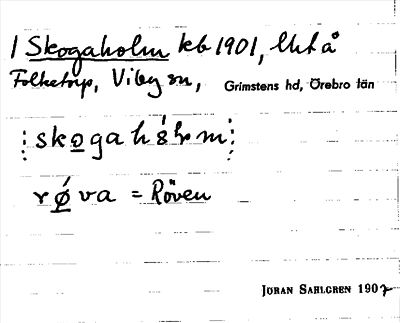 1 Skogaholm kb 1901, Utå
Folketorp, Viby sn, Grimstens hd, Örebro län
⋮skoga hólm⋮
rǿva = Röven
JÖRAN SAHLGREN 1907